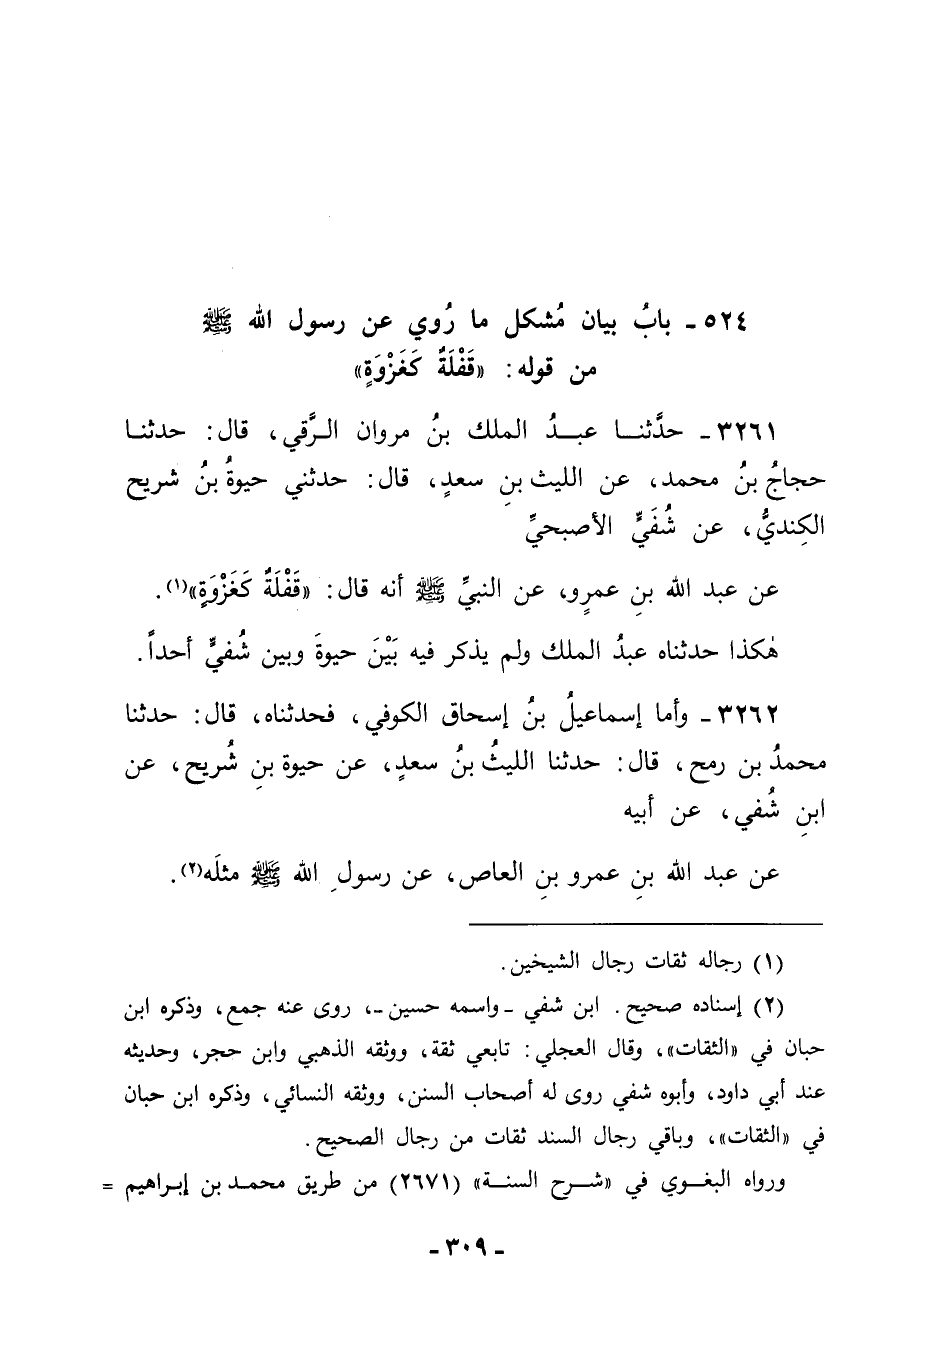 ٥٢٤ ـ بابُ بيان مُشكل ما رُوي عن رسول الله ﷺ
من قوله: «قَفْلَةٌ كَغَزْوَةٍ»
٣٢٦١ ـ حدَّثنا عبدُ الملك بنُ مروان الرَّقي، قال: حدثنا
حجاجُ بنُ محمد، عن الليث بنِ سعدٍ، قال: حدثني حيوةُ بنُ شريح
الكِنديُّ، عن شُفَيٍّ الأصبحيِّ
عن عبد الله بنِ عمرٍو، عن النبيِّ ﷺ أنه قال: «قَفْلَةٌ كَغَزْوَةٍ»(١).
هٰكذا حدثناه عبدُ الملك ولم يذكر فيه بَيْنَ حيوةَ وبين شُفيٍّ أحداً.
٣٢٦٢ ـ وأما إسماعيلُ بنُ إسحاق الكوفي، فحدثناه، قال: حدثنا
محمدُ بن رمح، قال: حدثنا الليثُ بنُ سعدٍ، عن حيوة بنِ شُريح، عن
ابنِ شُفي، عن أبيه
عن عبد الله بنِ عمرو بنِ العاص، عن رسولِ الله ﷺ مثلَه(٢).
(١) رجاله ثقات رجال الشيخين.
(٢) إسناده صحيح. ابن شفي ـ واسمه حسين ـ، روى عنه جمع، وذكره ابن
حبان في «الثقات»، وقال العجلي: تابعي ثقة، ووثقه الذهبي وابن حجر، وحديثه
عند أبي داود، وأبوه شفي روى له أصحاب السنن، ووثقه النسائي، وذكره ابن حبان
في «الثقات»، وباقي رجال السند ثقات من رجال الصحيح.
ورواه البغوي في «شرح السنة» (٢٦٧١) من طريق محمد بن إبراهيم =
ـ ٣٠٩ ـ